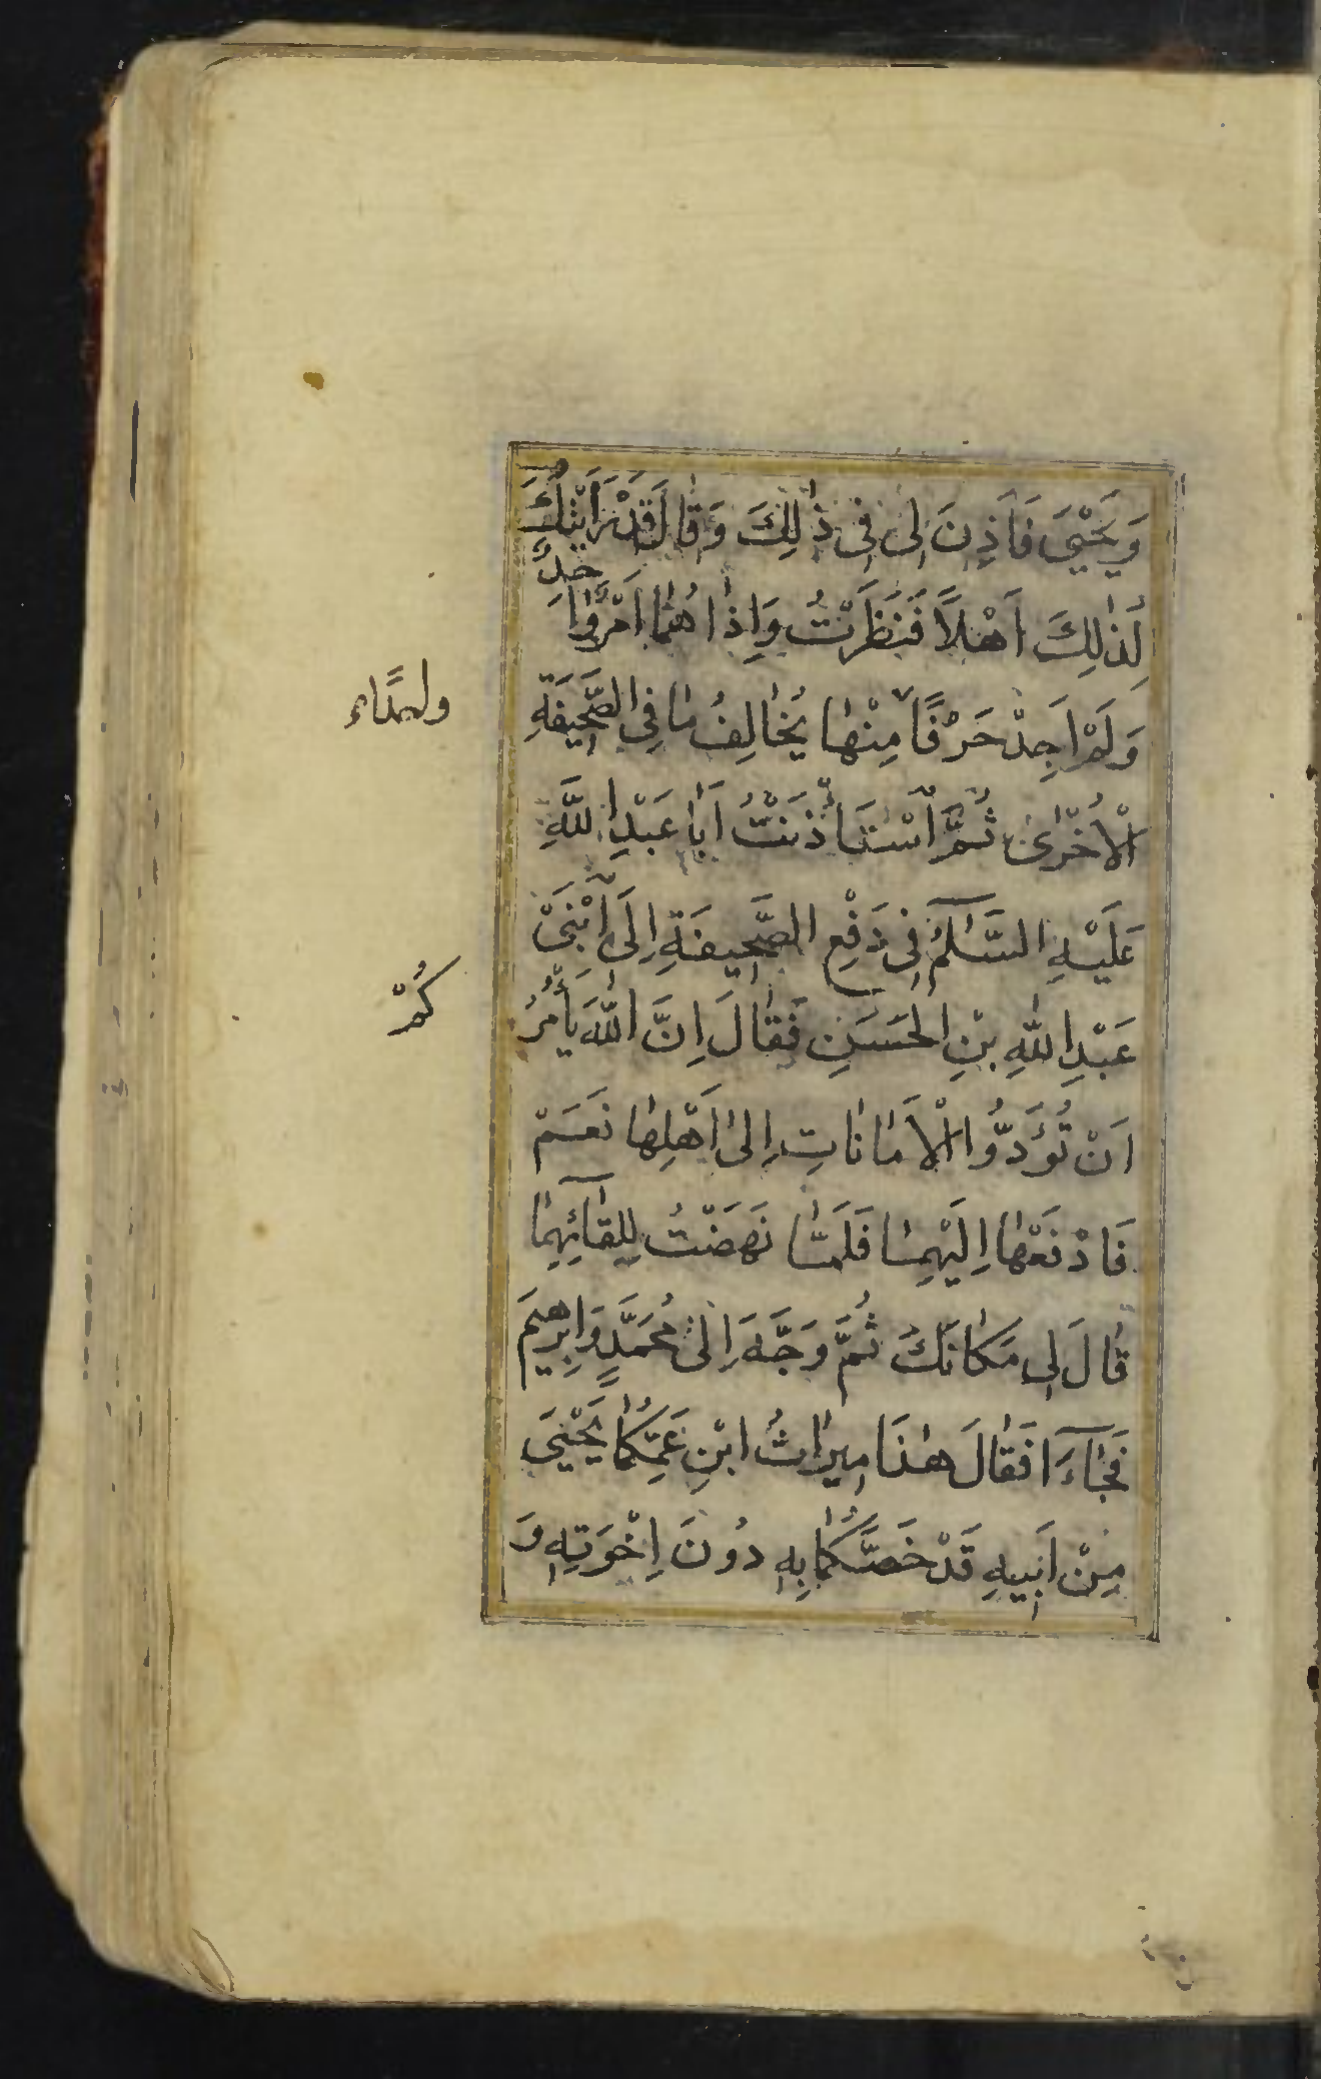 وَيَحْيَىٰ فَاَذِنَ لِي فِي ذٰلِكَ وَقَالَ قَدْ رَاَيْتُكَ
لِذٰلِكَ اَهْلًا فَنَظَرْتُ وَاِذَا هُمَا اَمْرٌ وَاحِدٌ
وَلَمْ اَجِدْ حَرْفًا مِنْهَا يُخَالِفُ مَا فِي الصَّحِيفَةِ
الْاُخْرىٰ ثُمَّ اسْتَأْذَنْتُ اَبَا عَبْدِ اللّٰهِ
عَلَيْهِ السَّلٰمُ فِي دَفْعِ الصَّحِيفَةِ اِلَى ابْنَيْ
عَبْدِ اللّٰهِ بْنِ الْحَسَنِ فَقَالَ اِنَّ اللّٰهَ يَأْمُرُ
كُمْ
اَنْ تُؤَدُّوا الْاَمَانَاتِ اِلىٰ اَهْلِهَا نَعَمْ
فَادْفَعْهَا اِلَيْهِمَا فَلَمَّا نَهَضْتُ لِلِقَآئِهِمَا
قَالَ لِي مَكَانَكَ ثُمَّ وَجَّهَ اِلىٰ مُحَمَّدٍ وَاِبْرٰهِيمَ
فَجَآءَا فَقَالَ هٰذَا مِيرَاثُ ابْنِ عَمِّكُمَا يَحْيَىٰ
مِنْ اَبِيهِ قَدْ خَصَّكُمَا بِهِ دُونَ اِخْوَتِهِ وَ